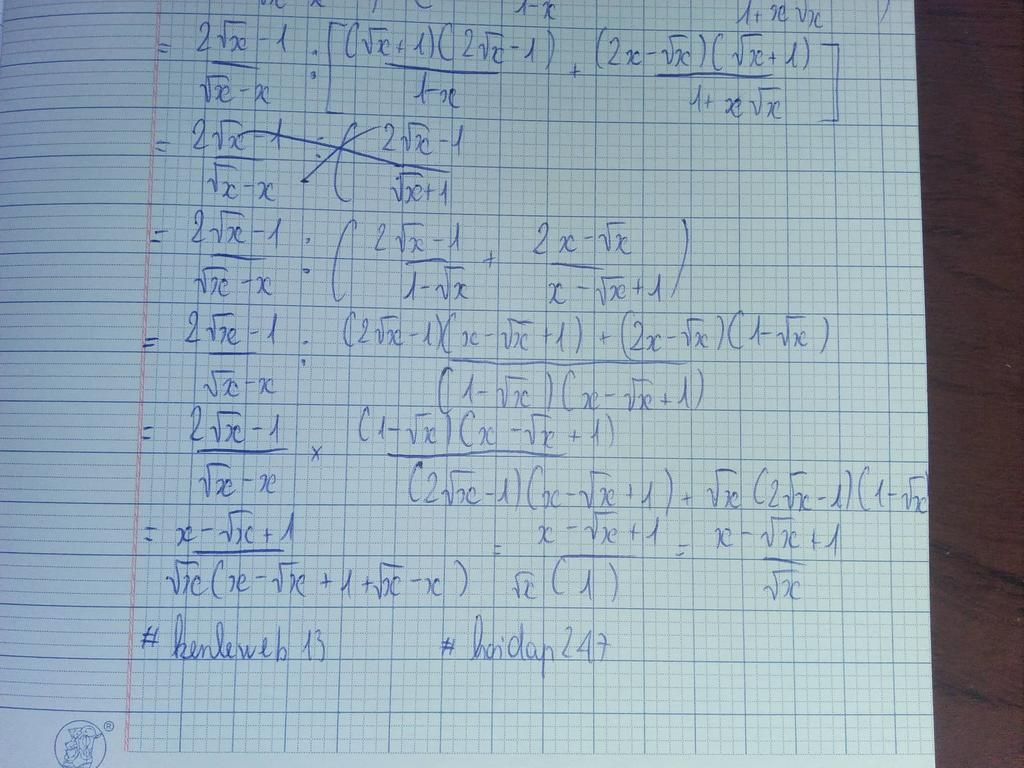 1-x 1+x√x
= (2√x-1)/(√x-x) : [ (√x+1)(2√x-1)/(1-x) + (2x-√x)(√x+1)/(1+x√x) ]
= (2√x-1)/(√x-x) : ( (2√x-1)/(√x+1)
= (2√x-1)/(√x-x) : ( (2√x-1)/(1-√x) + (2x-√x)/(x-√x+1) )
= (2√x-1)/(√x-x) : ((2√x-1)(x-√x+1)+(2x-√x)(1-√x))/((1-√x)(x-√x+1))
= (2√x-1)/(√x-x) × ((1-√x)(x-√x+1))/((2√x-1)(x-√x+1)+√x(2√x-1)(1-√x)
= (x-√x+1)/(√x(x-√x+1+√x-x)) = (x-√x+1)/(√x(1)) = (x-√x+1)/√x
# kenleweb 13 # hoidap247
®